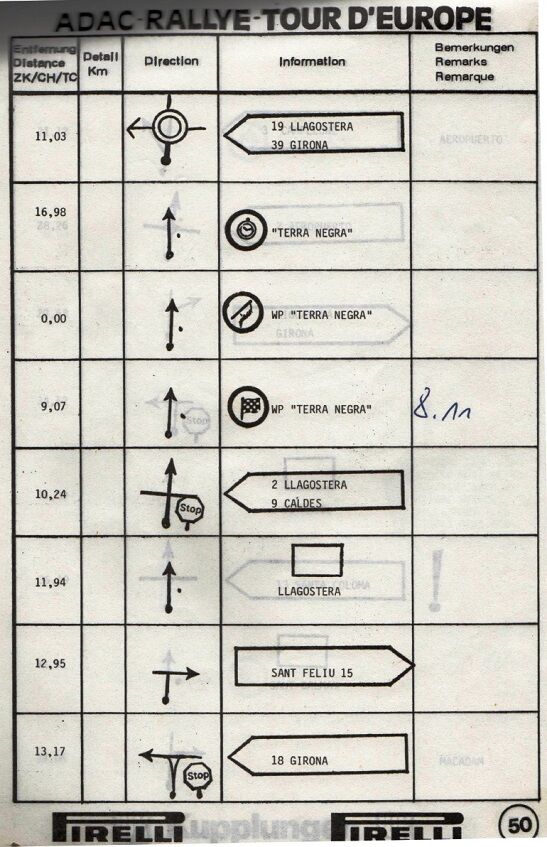 ADAC-RALLYE-TOUR D'EUROPE
Entfernung
Distance
ZK/CH/TC
Detail
Km
Direction
Information
Bemerkungen
Remarks
Remarque
11,03
19 LLAGOSTERA
39 GIRONA
AEROPUERTO
16,98
28,26
"TERRA NEGRA"
0,00
WP "TERRA NEGRA"
GIRONA
9,07
Stop
WP "TERRA NEGRA"
8.11
10,24
Stop
2 LLAGOSTERA
9 CALDES
11,94
17 SANTA COLOMA
!
LLAGOSTERA
12,95
SANT FELIU 15
13,17
Stop
18 GIRONA
MACADAM
PIRELLI
Kupplungen
PIRELLI
50